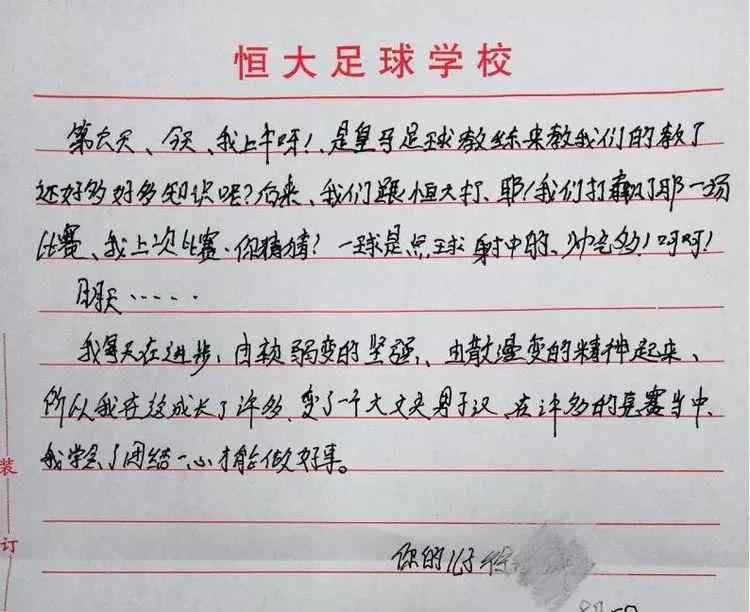 恒大足球学校
第六天、今天、我上午呀!、是皇马足球教练来教我们的教了
还好多好多知识呢?后来、我们跟恒大打、耶!我们打赢了耶一场
比赛、我上次比赛、你猜猜?一球是点球射中的、帅气多!呵呵!
明天……
我每天在进步,由软弱变的坚强、由散漫变的精神起来、
所以我在这成长了许多,变了一个大丈夫男子汉、在许多的竞赛当中、
我学会了团结一心才能做好事。
装
订
你的儿子